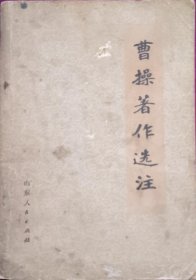 曹操著作选注
山东人民出版社